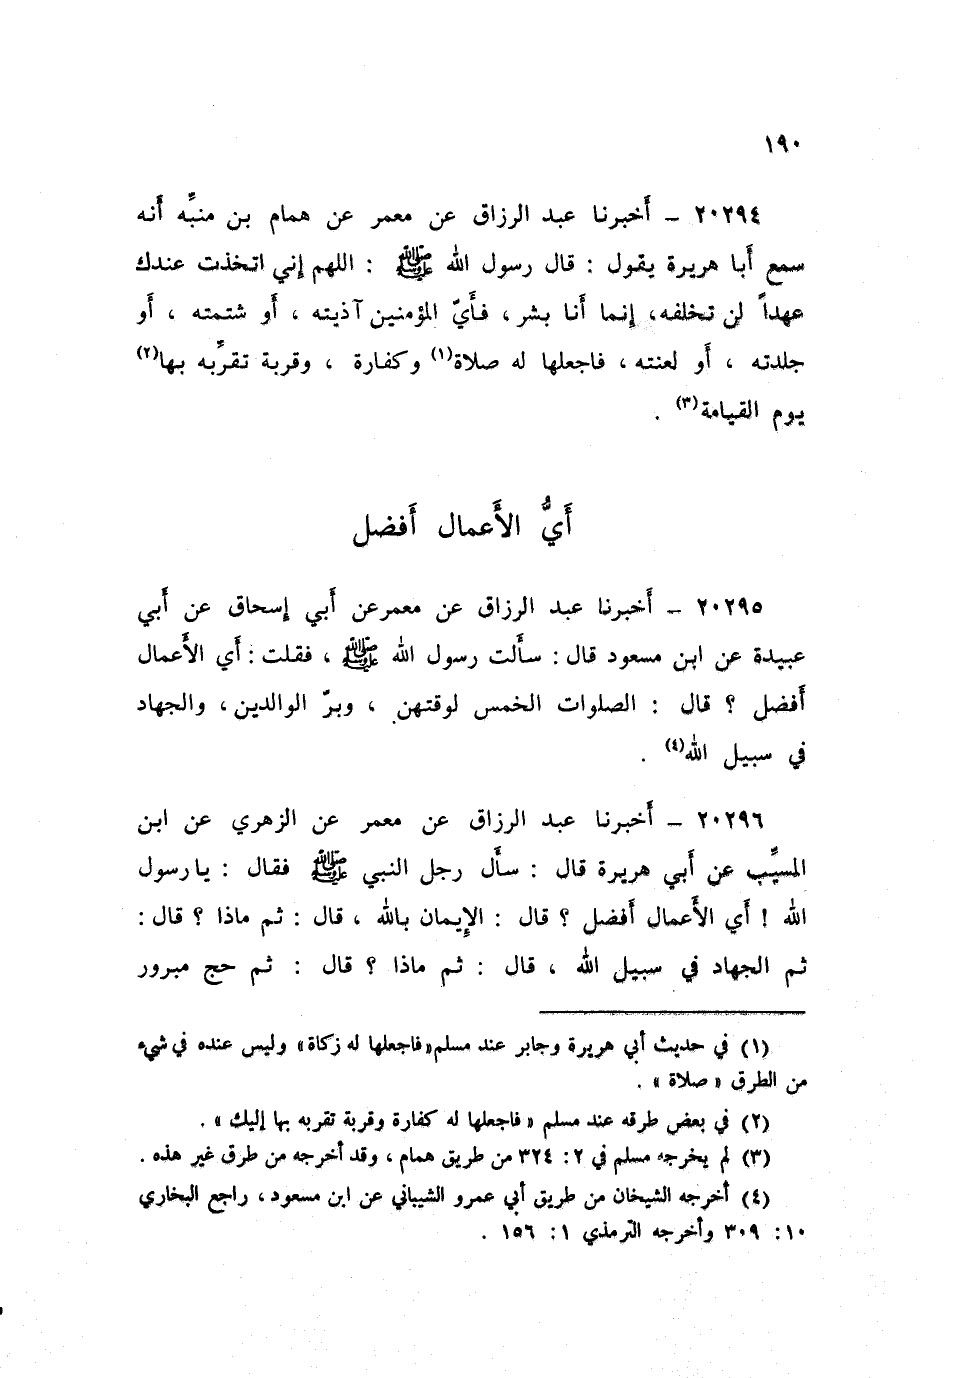 ١٩٠
٢٠٢٩٤ – أَخبرنا عبد الرزاق عن معمر عن همام بن منبِّه أَنه
سمع أَبا هريرة يقول : قال رسول الله ﷺ : اللهم إني اتخذت عندك
عهداً لن تخلفه، إنما أَنا بشر ، فأَيّ المؤمنين آذيته ، أَو شتمته ، أَو
جلدته ، أَو لعنته ، فاجعلها له صلاة(١) وكفارة ، وقربة تقرِّبه بها(٢)
يوم القيامة(٣) .
أَيُّ الأَعمال أَفضل
٢٠٢٩٥ – أَخبرنا عبد الرزاق عن معمرعن أَبي إسحاق عن أَبي
عبيدة عن ابن مسعود قال : سأَلت رسول الله ﷺ ، فقلت : أَي الأَعمال
أَفضل ؟ قال : الصلوات الخمس لوقتهن ، وبرّ الوالدين ، والجهاد
في سبيل الله(٤) .
٢٠٢٩٦ – أَخبرنا عبد الرزاق عن معمر عن الزهري عن ابن
المسيِّب عن أَبي هريرة قال : سأَل رجل النبي ﷺ فقال : يا رسول
الله ! أَي الأَعمال أَفضل ؟ قال : الإِيمان بالله ، قال : ثم ماذا ؟ قال :
ثم الجهاد في سبيل الله ، قال : ثم ماذا ؟ قال : ثم حج مبرور
(١) في حديث أبي هريرة وجابر عند مسلم«فاجعلها له زكاة» وليس عنده في شيء
من الطرق « صلاة » .
(٢) في بعض طرقه عند مسلم « فاجعلها له كفارة وقربة تقربه بها إليك » .
(٣) لم يخرجه مسلم في ٢ : ٣٢٤ من طريق همام ، وقد أخرجه من طرق غير هذه .
(٤) أخرجه الشيخان من طريق أبي عمرو الشيباني عن ابن مسعود ، راجع البخاري
١٠ : ٣٠٩ وأخرجه الترمذي ١ : ١٥٦ .